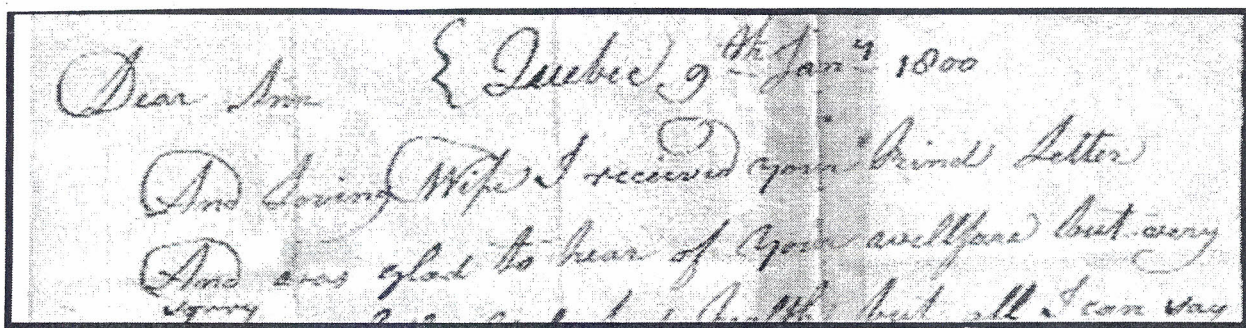 Dear Ann { Quebec 9th Jany 1800
And Loving Wife I received your kind Letter
And was glad to hear of your wellfare but very
sorry health but all I can say